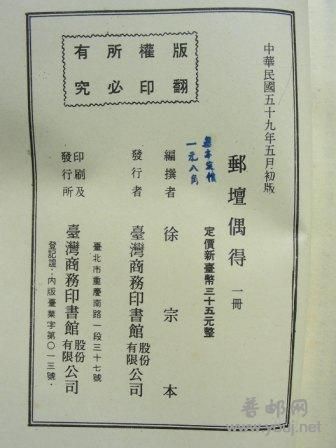 中華民國五十九年五月初版
郵壇偶得 一冊
定價新臺幣三十五元整
一元八角
編撰者 徐宗本
發行者 臺灣商務印書館股份有限公司
臺北市重慶南路一段三十七號
印刷及發行所 臺灣商務印書館股份有限公司
登記證：內版臺業字第〇一三號
版權所有
翻印必究
普邮网
www.ypbj.net